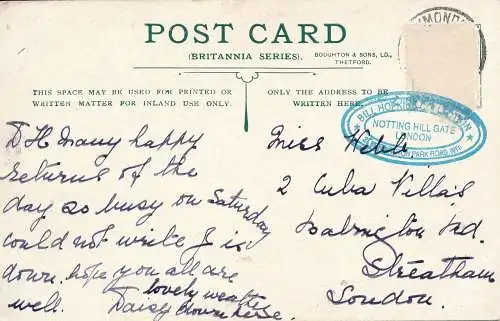 POST CARD
(BRITANNIA SERIES).
BOUGHTON & SONS, LD.,
THETFORD.
THIS SPACE MAY BE USED FOR PRINTED OR
WRITTEN MATTER FOR INLAND USE ONLY.
ONLY THE ADDRESS TO BE
WRITTEN HERE.
NOTTING HILL GATE
LONDON
D H many happy
returns of the
day so busy on Saturday
could not write J is
down. hope you all are
well. lovely weather
Daisy down here.
Miss Webb
2 Cuba Villas
Rd.
Streatham
London.